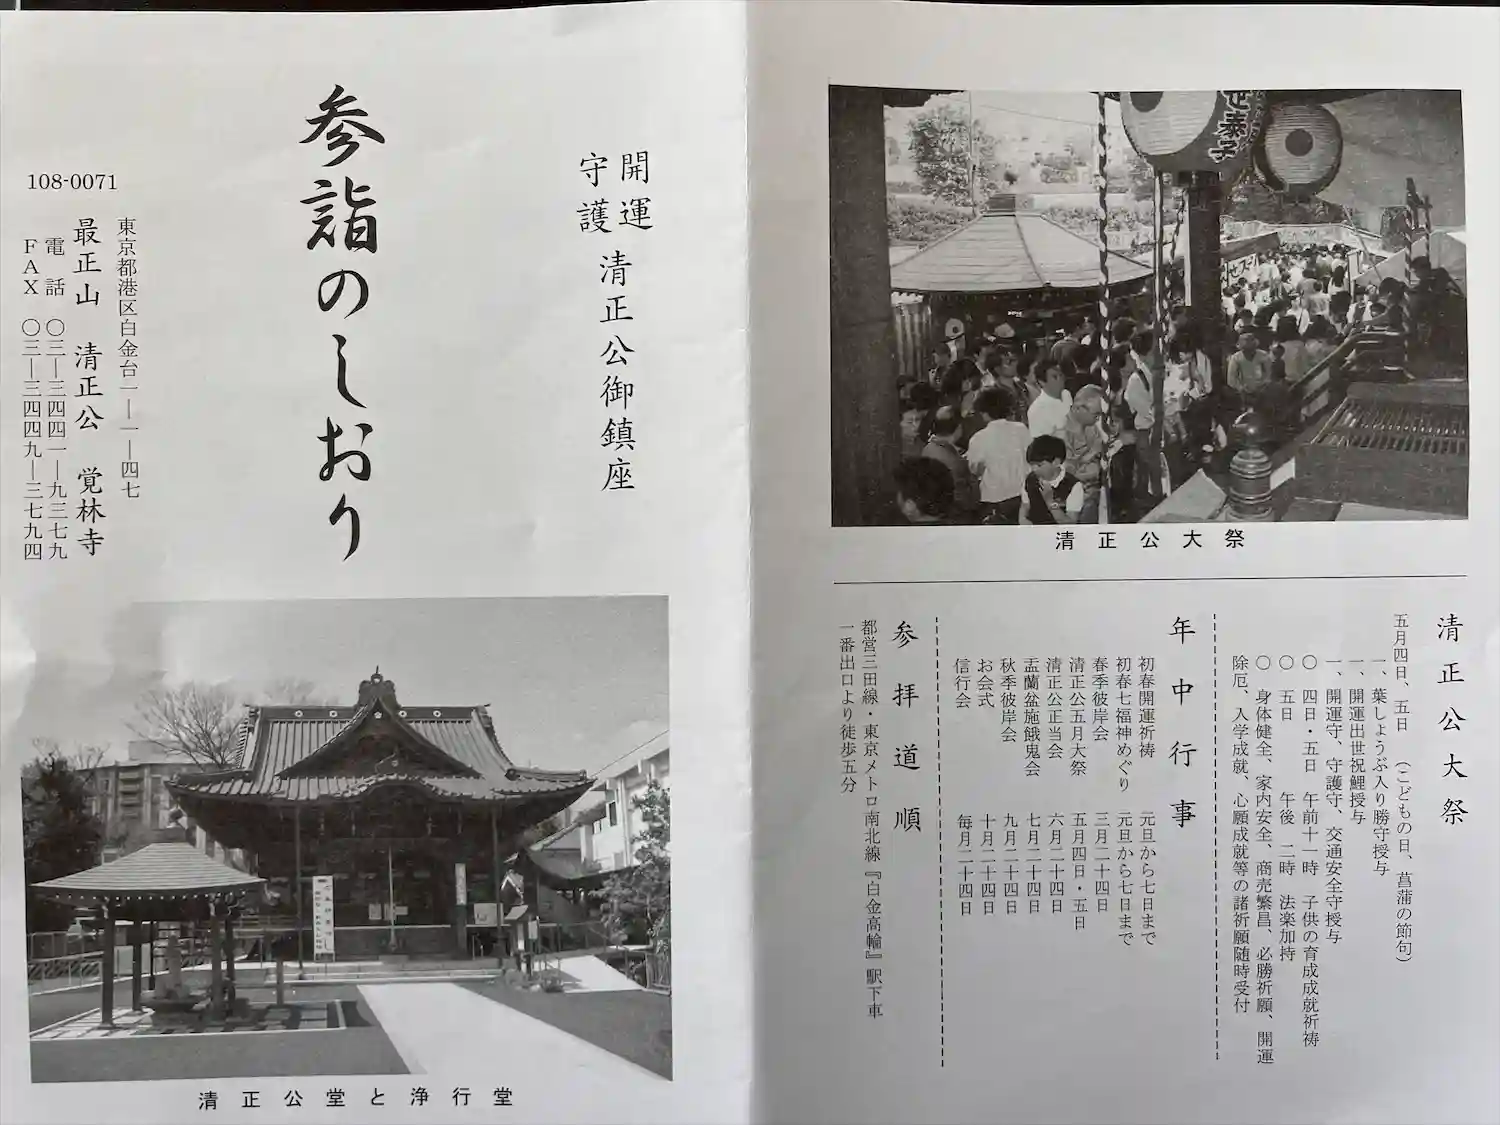 開運
守護
清正公御鎮座
参詣のしおり
108-0071
東京都港区白金台一―一―四七
最正山 清正公 覚林寺
電話 〇三―三四四一―九三七九
FAX 〇三―三四四九―三七九四
清正公堂と浄行堂
清正公大祭
清正公大祭
五月四日、五日 (こどもの日、菖蒲の節句)
一、葉しょうぶ入り勝守授与
一、開運出世祝鯉授与
一、開運守、守護守、交通安全守授与
〇 四日・五日 午前十一時 子供の育成成就祈祷
〇 五日 午後 二時 法楽加持
〇 身体健全、家内安全、商売繁昌、必勝祈願、開運
除厄、入学成就、心願成就等の諸祈願随時受付
年中行事
初春開運祈祷 元旦から七日まで
初春七福神めぐり 元旦から七日まで
春季彼岸会 三月二十四日
清正公五月大祭 五月四日・五日
清正公正当会 六月二十四日
盂蘭盆施餓鬼会 七月二十四日
秋季彼岸会 九月二十四日
お会式 十月二十四日
信行会 毎月二十四日
参拝道順
都営三田線・東京メトロ南北線『白金高輪』駅下車
一番出口より徒歩五分